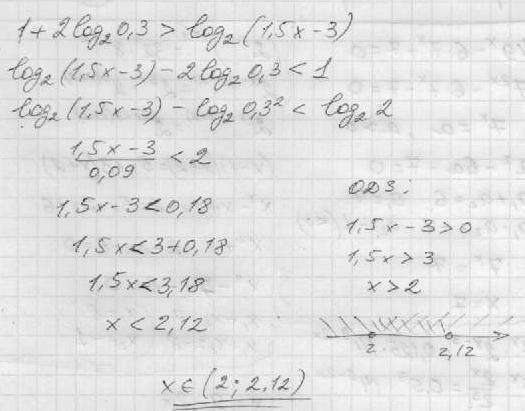 1 + 2log₂0,3 > log₂(1,5x-3)
log₂(1,5x-3) - 2log₂0,3 < 1
log₂(1,5x-3) - log₂0,3² < log₂2
(1,5x-3)/0,09 < 2
1,5x-3 < 0,18
1,5x < 3+0,18
1,5x < 3,18
x < 2,12
ОДЗ:
1,5x-3 > 0
1,5x > 3
x > 2
2 2,12
x ∈ (2; 2,12)